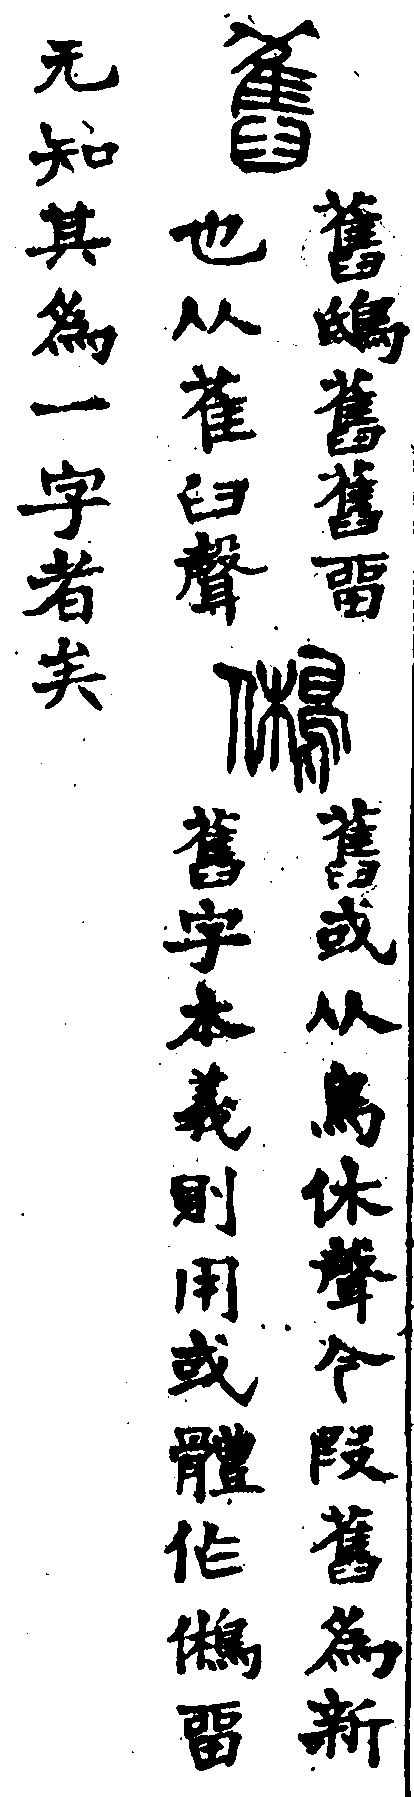 舊
舊鴟舊舊畱
也从雈臼聲
鵂
舊或从鳥休聲今叚舊為新
舊字本義則用或體作鵂畱
无知其為一字者矣